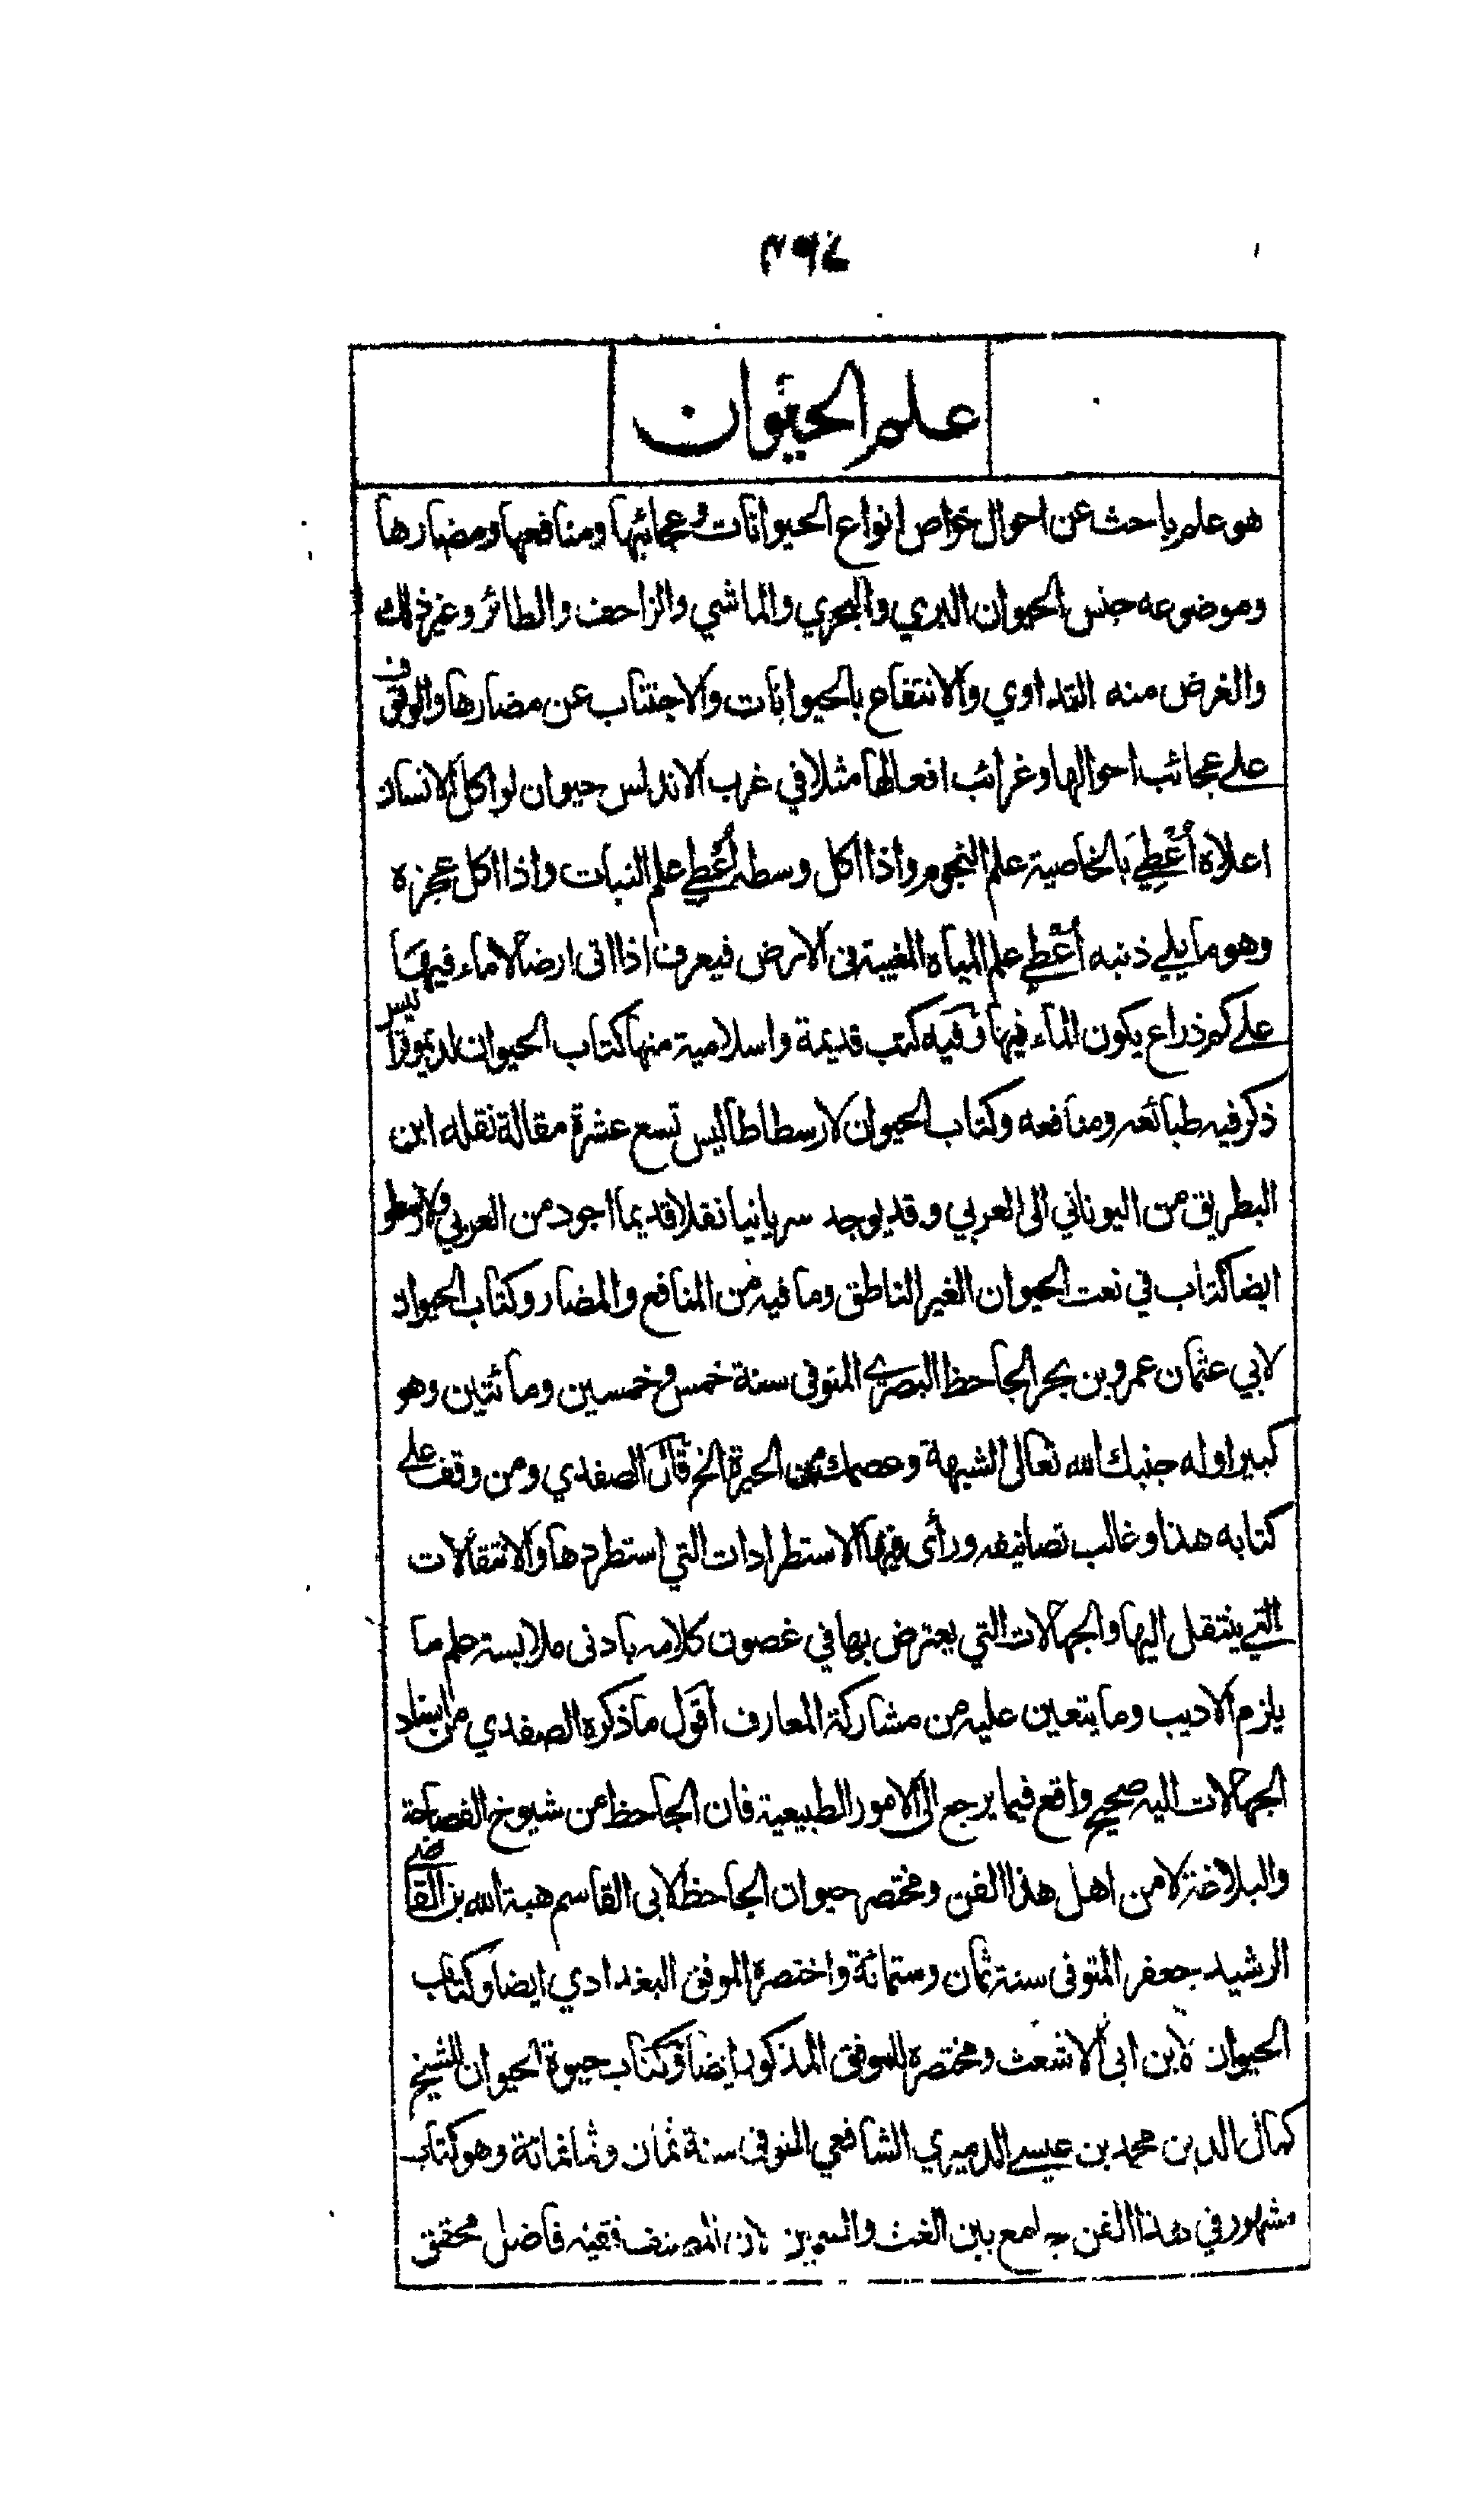 ٣٩٤
علم الحيوان
هو علم باحث عن احوال خواص انواع الحيوانات وعجائبها ومنافعها ومضارها
وموضوعه جنس الحيوان البري والبحري والماشي والزاحف والطائر وغير ذلك
والغرض منه التداوي والانتفاع بالحيوانات والاجتناب عن مضارها والوقوف
على عجائب احوالها وغرائب افعالها مثلا في غرب الاندلس حيوان لو اكل الانسان
اعلاه أعْطِيَ بالخاصية علم النجوم واذا اكل وسطه أعطي علم النبات واذا اكل عجزه
وهو ما يلي ذنبه أعْطي علم المياه المغيبة في الارض فيعرف اذا اتى ارضا لا ماء فيها
على كم ذراع يكون الماء فيها وفيه كتب قديمة واسلامية منها كتاب الحيوان لديموقراطيس
ذكر فيه طبائعه ومنافعه وكتاب الحيوان لارسطاطاليس تسع عشرة مقالة نقله ابن
البطريق من اليوناني الى العربي وقد يوجد سريانيا نقلا قديما اجود من العربي ولارسطو
ايضا كتاب في نعت الحيوان الغير الناطق وما فيه من المنافع والمضار وكتاب الحيوان
لابي عثمان عمرو بن بحر الجاحظ البصري المتوفى سنة خمس وخمسين ومائتين وهو
كبير اوله جنبك الله تعالى الشبهة وعصمك من الحيرة الخ قال الصفدي ومن وقف على
كتابه هذا وغالب تصانيفه ورأى فيها الاستطرادات التي استطردها والانتقالات
التي ينتقل اليها والجهالات التي يعترض بها في غصون كلامه بادنى ملابسة علم ما
يلزم الاديب وما يتعين عليه من مشاركة المعارف أقول ما ذكره الصفدي من اسناد
الجهالات اليه صحيح واقع فيما يرجع الى الامور الطبيعية فان الجاحظ من شيوخ الفصاحة
والبلاغة لا من اهل هذا الفن ومختصر حيوان الجاحظ لابي القاسم هبة الله بن القاضي
الرشيد جعفر المتوفى سنة ثمان وستمائة واختصره الموفق البغدادي ايضا وكتاب
الحيوان لابن ابي الاشعث ومختصره للموفق المذكور ايضا وكتاب حيوة الحيوان للشيخ
كمال الدين محمد بن عيسى الدميري الشافعي المتوفى سنة ثمان وثمانمائة وهو كتاب
مشهور في هذا الفن جامع بين الغث والسمين لان المصنف فقيه فاضل محقق